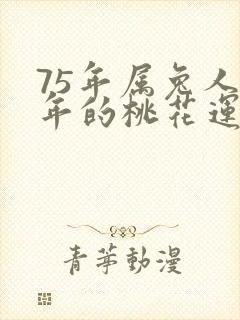 75年属兔人
年的桃花運
青苹動漫